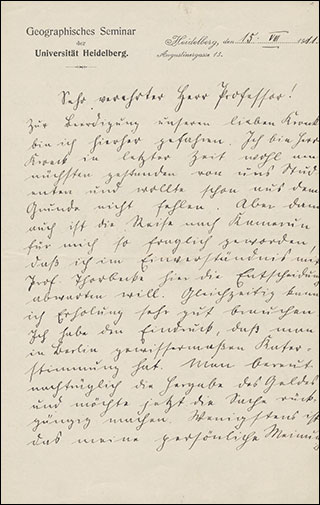 Geographisches Seminar
der
Universität Heidelberg.
Heidelberg, den 15. VII 1911.
Augustinergasse 15.
Sehr verehrter Herr Professor!
Zur Beerdigung unseren lieben Kronck
bin ich hierher gefahren. Ich bin Herr
in letzter Zeit wohl am
nächsten gestanden von uns Stud
enten und wollte schon aus dem
Grunde nicht fehlen. Aber dann
auch ist die Reise nach Kamerun
für mich so fraglich geworden,
daß ich im Einverständnis mit
Prof Thorbecke hier die Entscheidung
abwarten will. Gleichzeitig kann
ich Erholung sehr gut brauchen
Ich habe den Eindruck, daß man
in Berlin gewissermaßen Kater-
stimmung hat. Man bereut
nachträglich die Hergabe des Geldes
und möchte jetzt die Sache rück-
gängig machen. Wenigstens ist
das meine persönliche Meinung